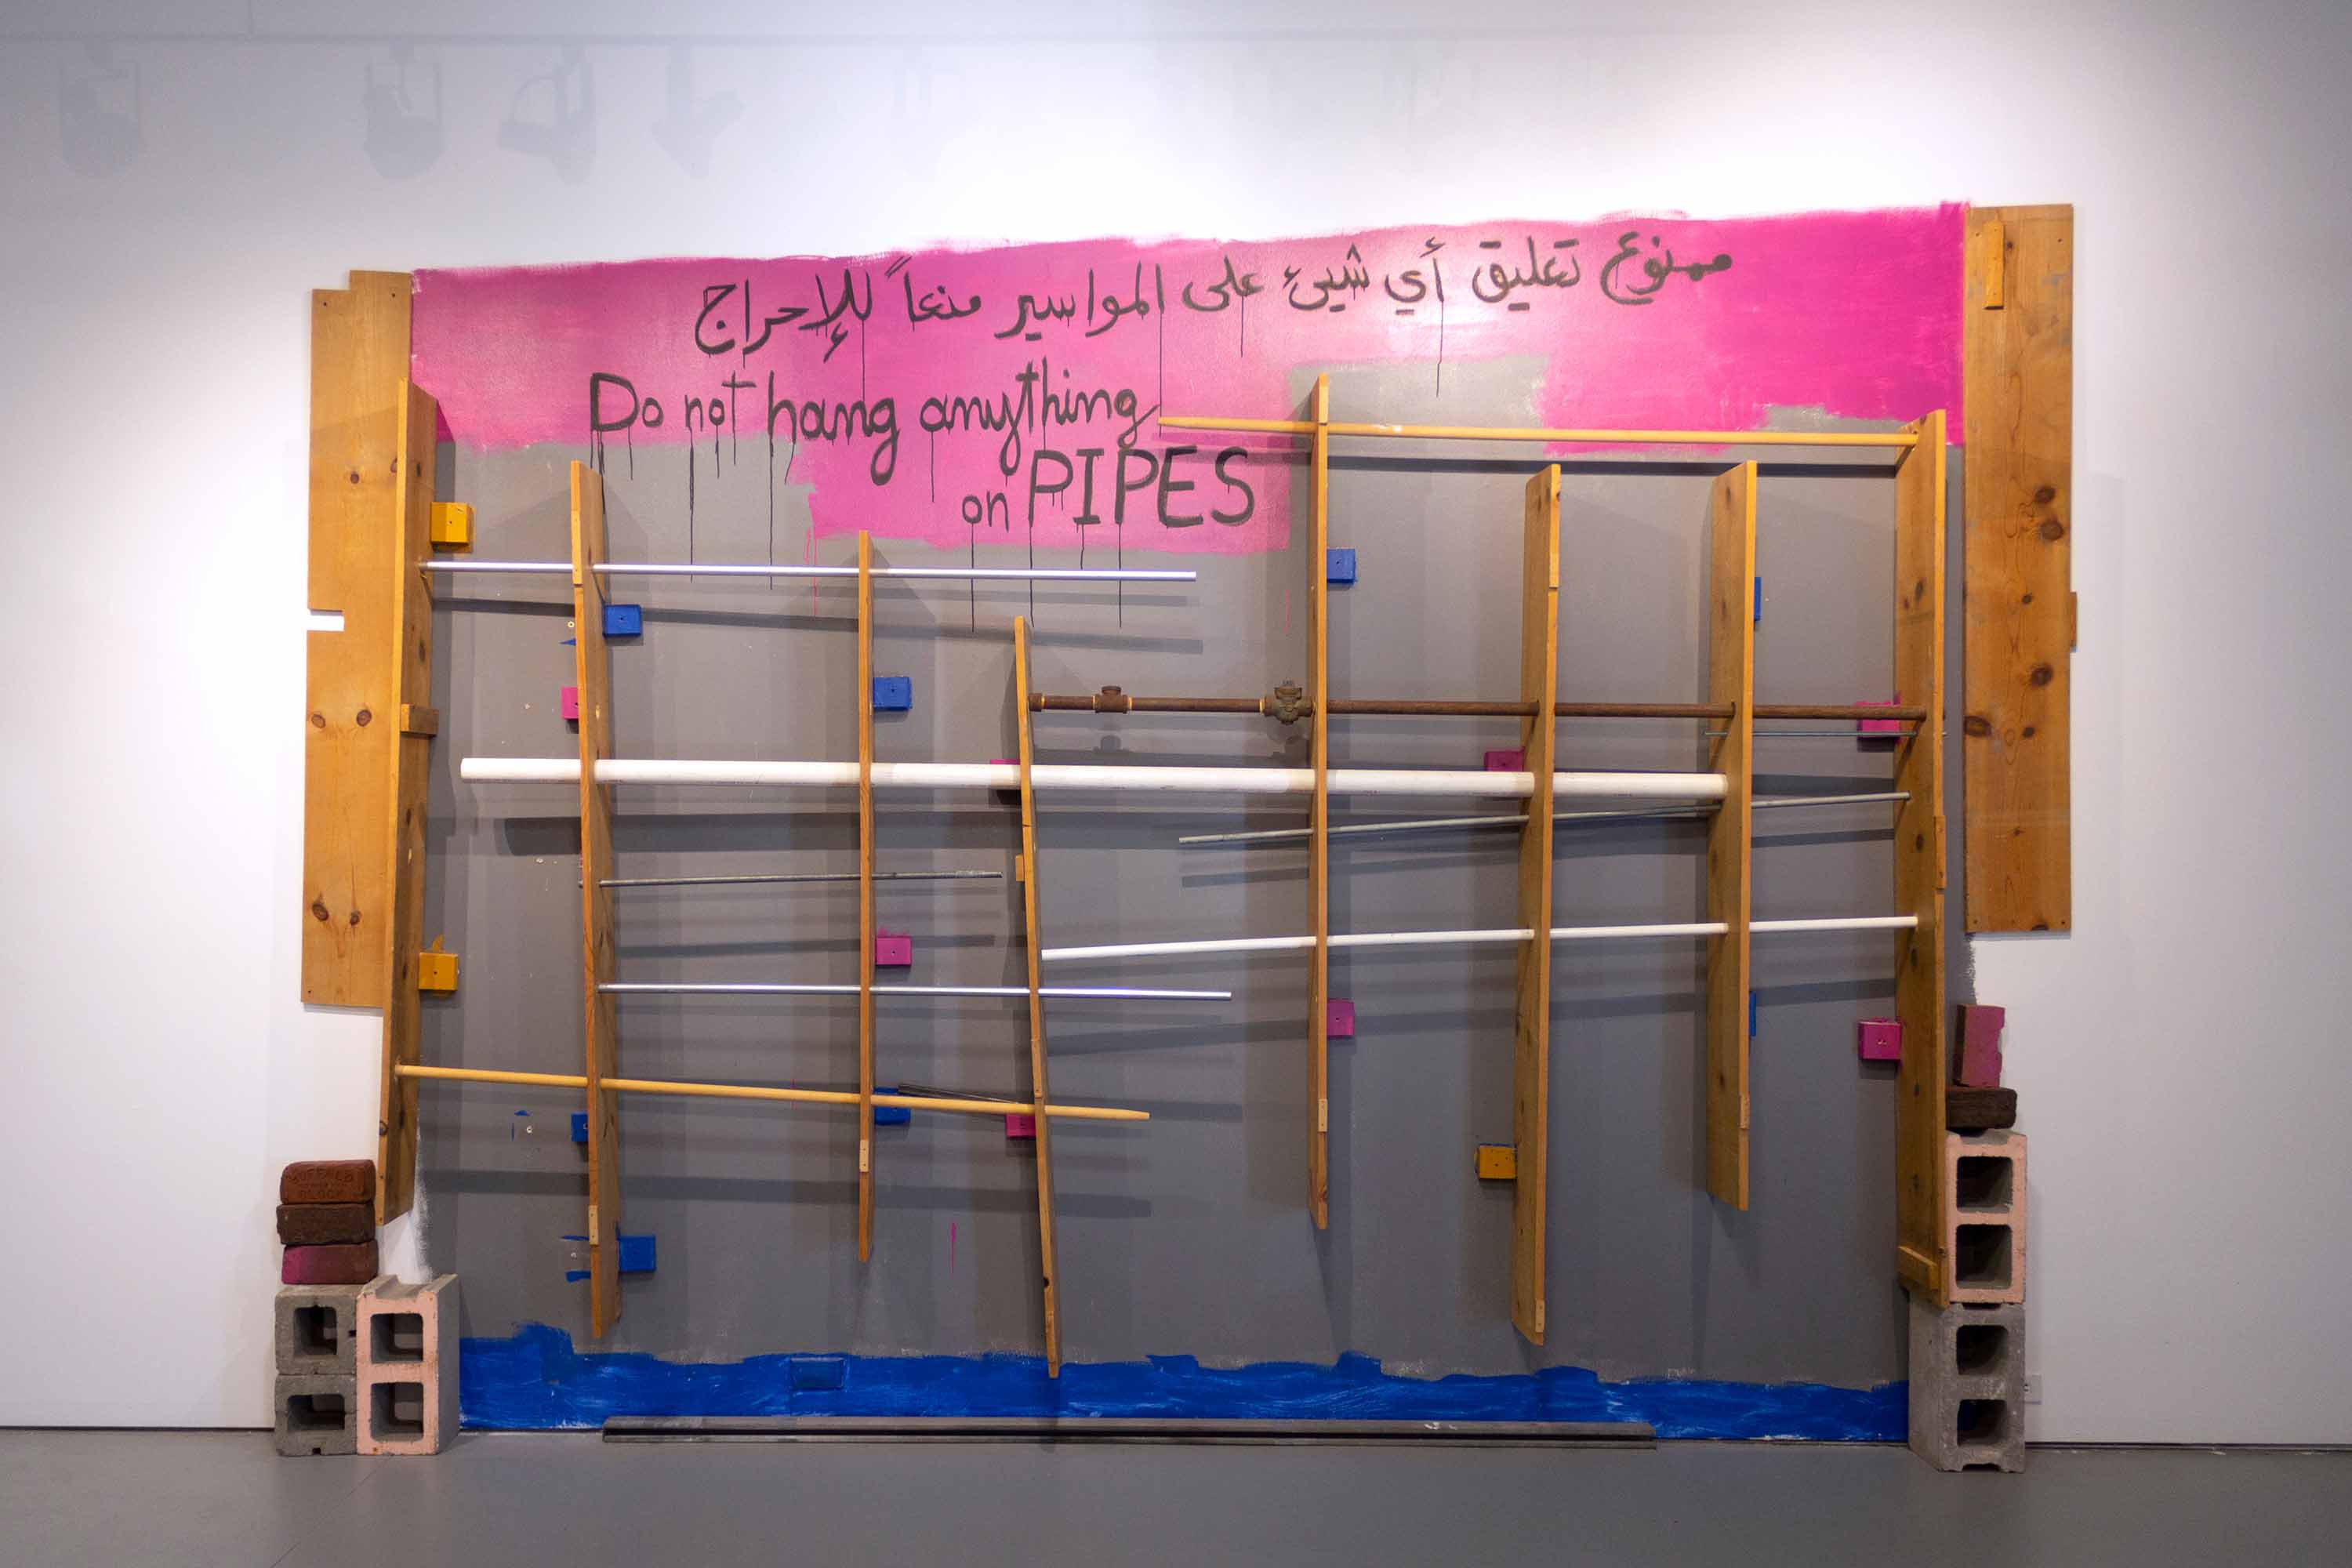 ممنوع تعليق أي شيئ على المواسير منعاً للإحراج
Do not hang anything
on PIPES